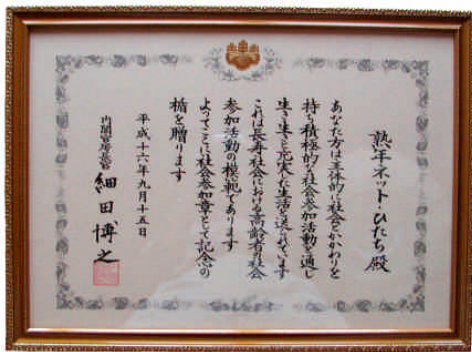 熟年ネット・ひたち殿
あなた方は主体的に社会とかかわりを
持ち積極的な社会参加活動を通し
生き生きと充実した生活を送られています
これは長寿社会における高齢者の社会
参加活動の模範であります
よってここに社会参加章として記念の
楯を贈ります
平成十六年九月十五日
内閣官房長官 細田博之